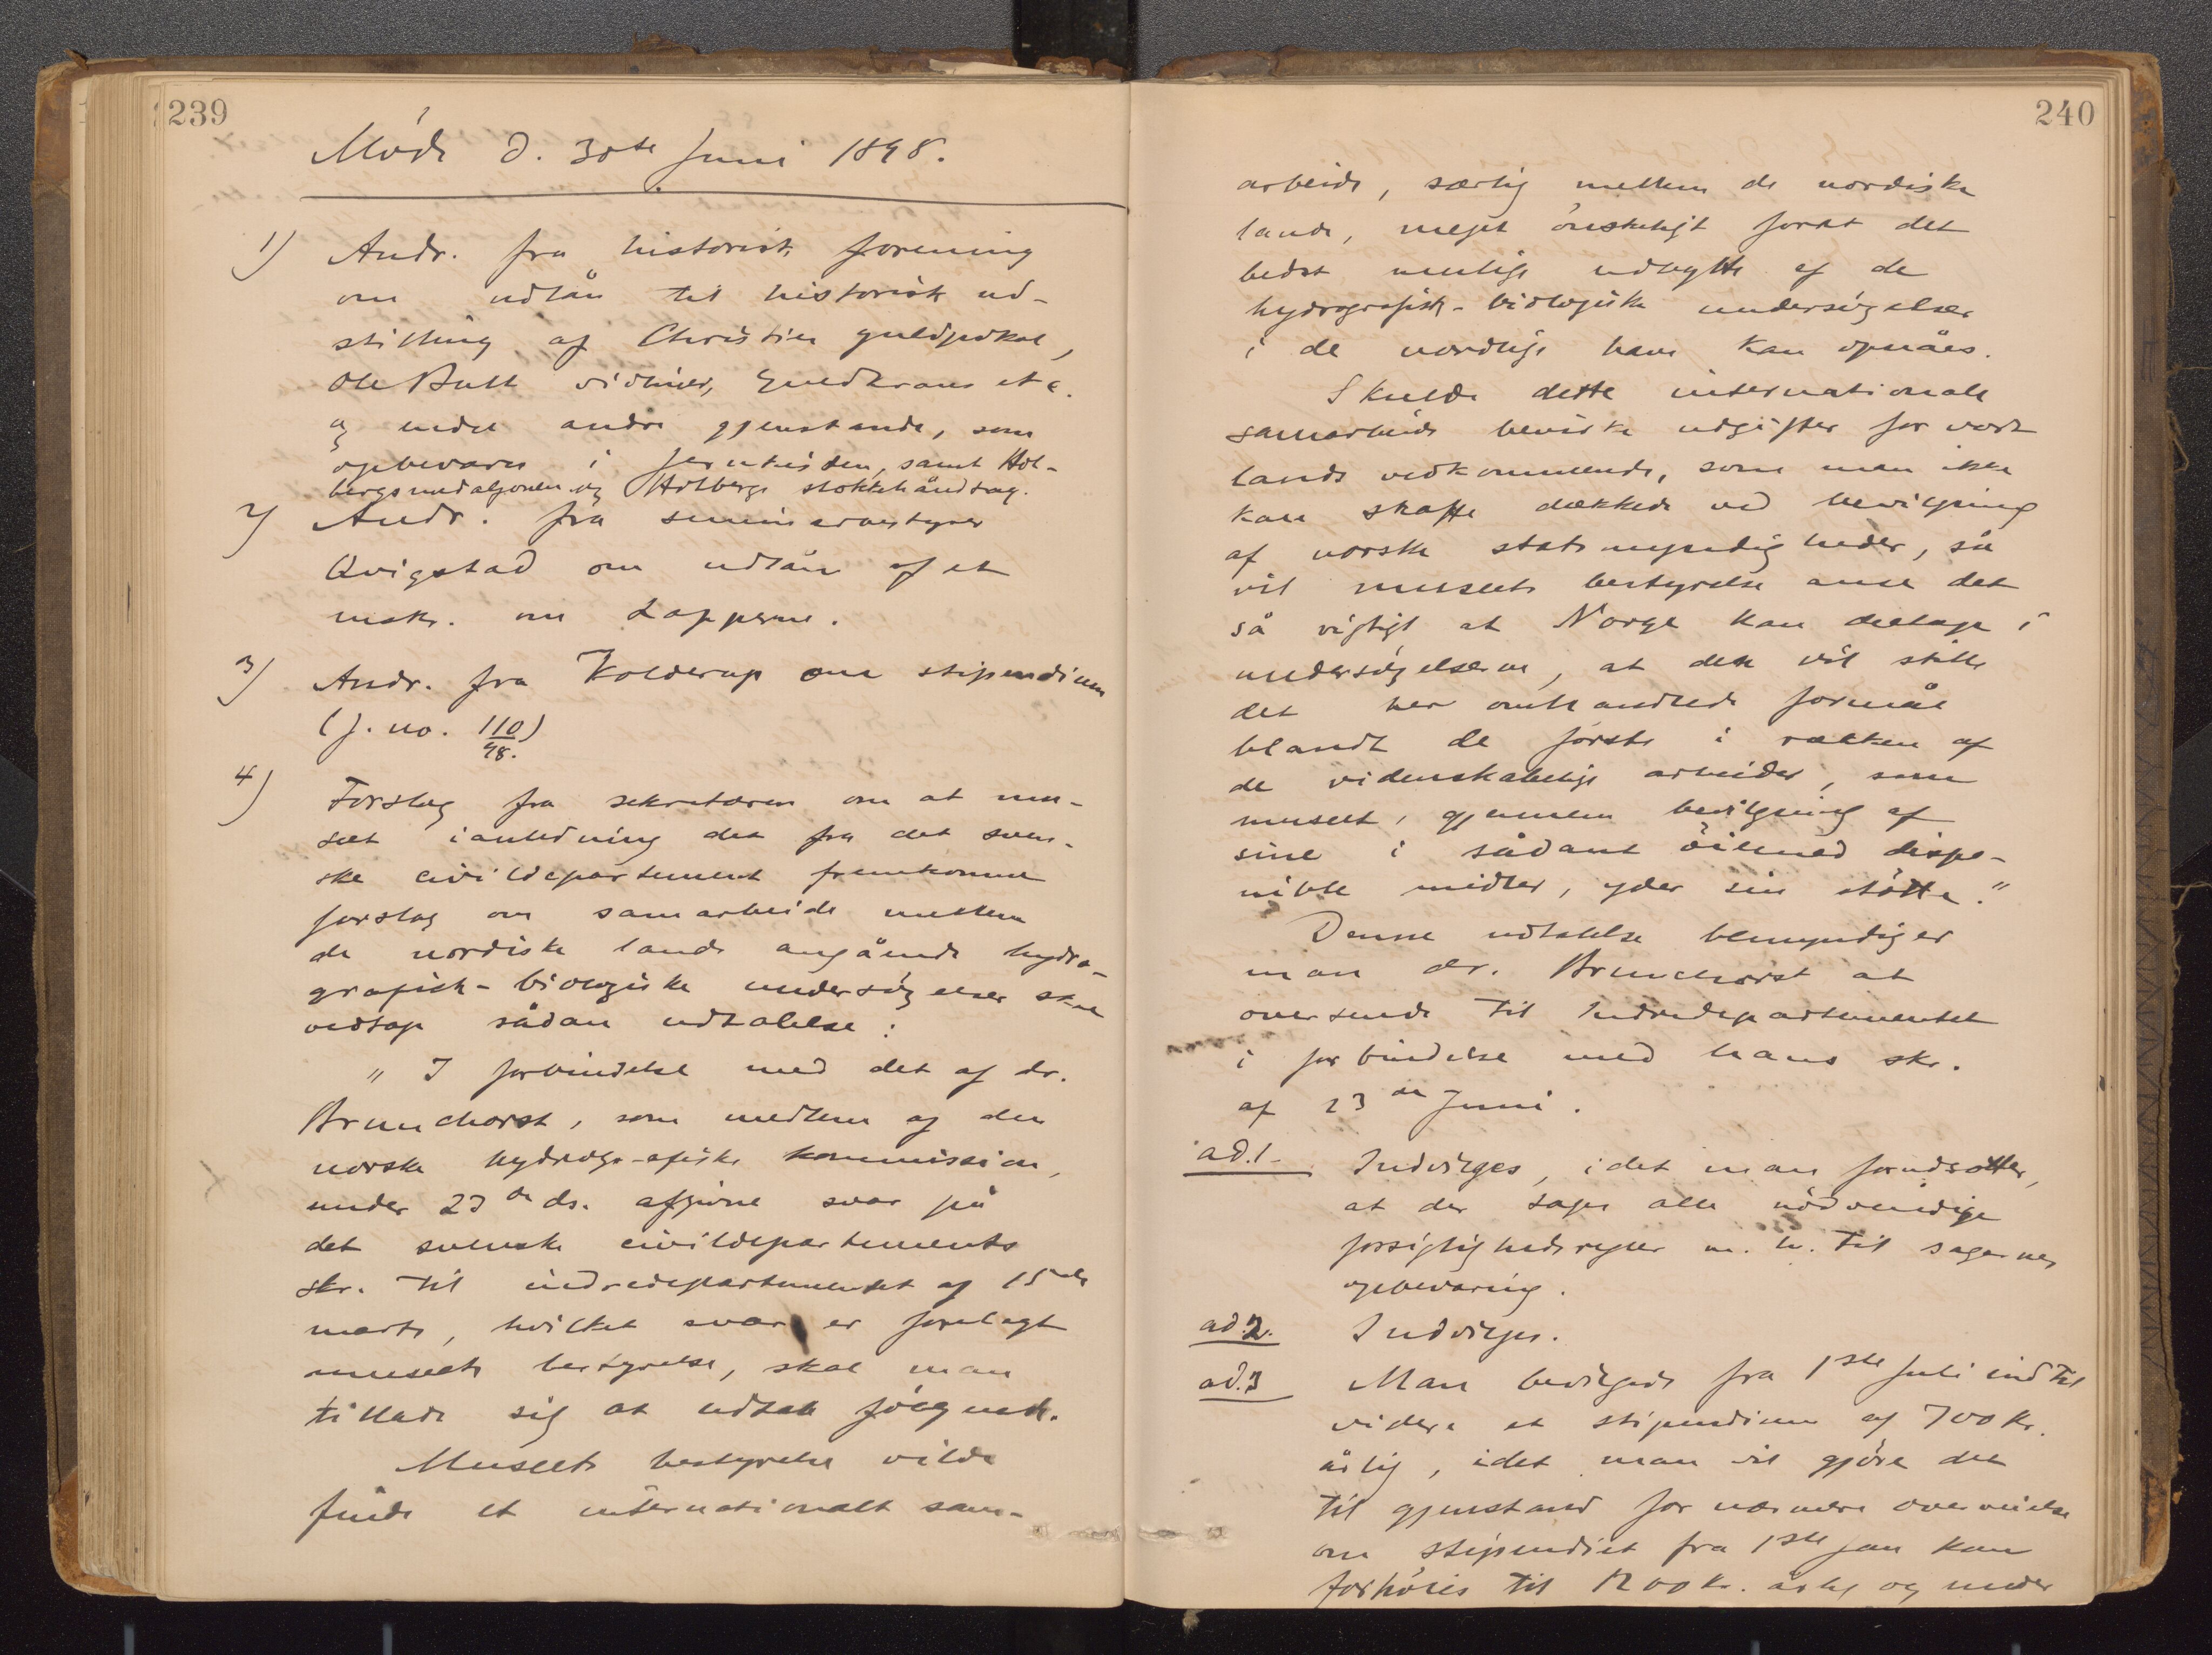 239
Møde d. 30te Juni 1898.
1) Andr. fra historisk forening
om udlån til historisk ud-
stilling af Christies guldpokal,
Ole Bulls violiner, guldkrans etc.
og endel andre gjenstande, som
opbevares i jernkisten, samt Hol-
bergsmedaljonen og Holbergs stokkehåndtag.
2) Andr. fra seminariebestyrer
Qvigstad om udlån af et
mskr. om Lapperne.
3) Andr. fra Kolderup om stipendium
(j. no. 110/98.)
4) Forslag fra sekretæren om at mu-
sæet i anledning det fra det sven-
ske civildepartement fremkomne
forslag om samarbeide mellem
de nordiske lande angående hydro-
grafisk-biologiske undersøgelser skal
vedtage sådan udtalelse:
"I forbindelse med det af dr.
Brunchorst, som medlem af den
norske hydrografiske kommission,
under 23de ds. afgivne svar på
det svenske civildepartements
skr. til indredepartementet af 15de
marts, hvilket svar er forelagt
museets bestyrelse, skal man
tillade sig at udtale følgende.
Museets bestyrelse vilde
finde et internationalt sam-
240
arbeide, særlig mellem de nordiske
lande, meget ønskeligt forat det
bedst mulige udbytte af de
hydrografisk-biologiske undersøgelser
i de nordlige have kan opnåes.
Skulde dette internationale
samarbeide bevirke udgifter for vort
lands vedkommende, som man ikke
kan skaffe dækkede ved bevilgning
af norske statsmyndigheder, så
vil museets bestyrelse anse det
så vigtigt at Norge kan deltage i
undersøgelserne, at den vil stille
det her omhandlede formål
blandt de første i rækken af
de videnskabelige arbeider, som
museet, gjennem bevilgning af
sine i sådant øiemed dispo-
nible midler, yder sin støtte."
Denne udtalelse bemyndiger
man dr. Brunchorst at
oversende til Indredepartementet
i forbindelse med hans skr.
af 23de Juni.
ad.1. Indvilges, idet man forudsætter,
at der tages alle nødvendige
forsigtighedsregler m. h. til sagernes
opbevaring.
ad.2. Indvilges.
ad.3 Man bevilgede fra 1ste Juli indtil
videre et stipendium af 700 kr.
årlig, idet man vil gjøre det
til gjenstand for nærmere overveielse
om stipendiet fra 1ste jan kan
forhøies til 1200 kr. årlig og under